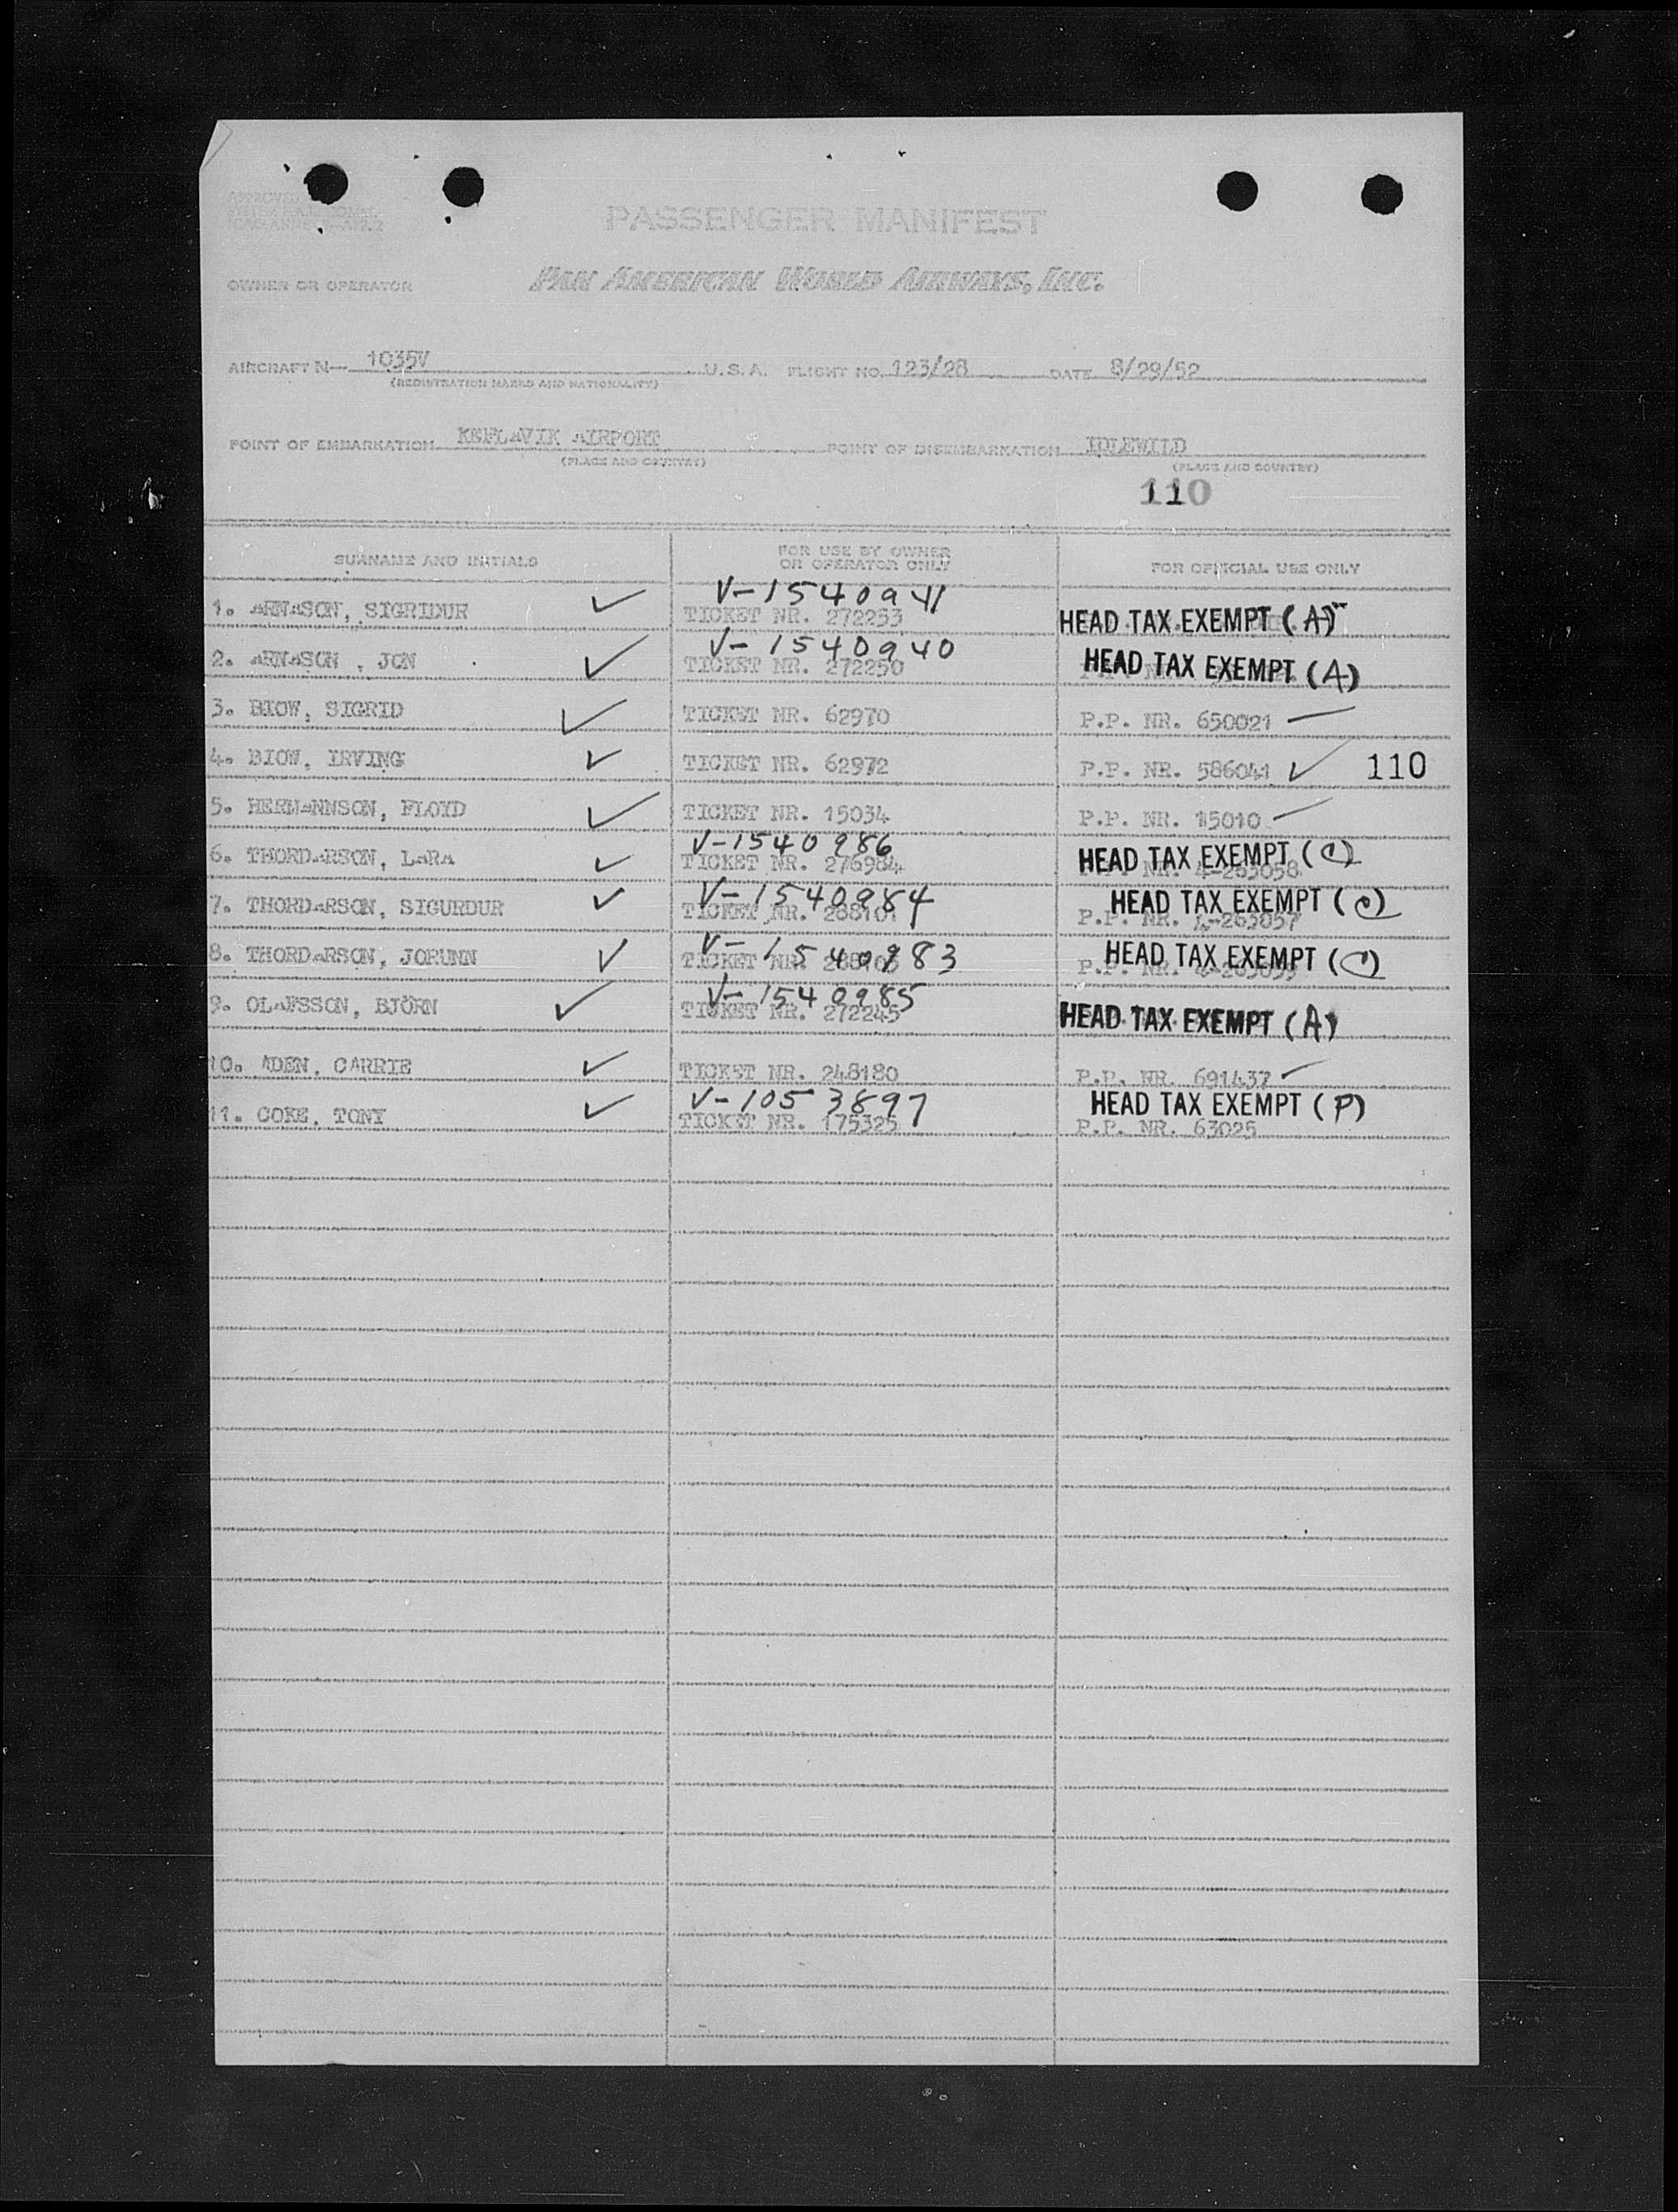 PASSENGER MANIFEST
OWNER OR OPERATOR PAN AMERICAN WORLD AIRWAYS, INC.
AIRCRAFT N— 1035V U.S.A. FLIGHT NO. 123/28 DATE 8/29/52
(REGISTRATION MARKS AND NATIONALITY)
POINT OF EMBARKATION KEFLAVIK AIRPORT POINT OF DISEMBARKATION IDLEWILD
(PLACE AND COUNTRY) (PLACE AND COUNTRY)
110
SURNAME AND INITIALS FOR USE BY OWNER OR OPERATOR ONLY FOR OFFICIAL USE ONLY
V-1540941
1. ARNASON, SIGRIDUR ✓ TICKET NR. 272253 HEAD TAX EXEMPT (A)
V-1540940
2. ARNASON , JON ✓ TICKET NR. 272250 HEAD TAX EXEMPT (A)
3. BIOW, SIGRID ✓ TICKET NR. 62970 P.P. NR. 650021
4. BIOW, IRVING ✓ TICKET NR. 62972 P.P. NR. 586041 ✓ 110
5. HERMANNSON, FLOYD ✓ TICKET NR. 15034 P.P. NR. 15010
V-1540986 HEAD TAX EXEMPT (C)
6. THORDARSON, LARA ✓ TICKET NR. 276984 P.P. NR. 4-263058
V-1540984 HEAD TAX EXEMPT (C)
7. THORDARSON, SIGURDUR ✓ TICKET NR. 288101 P.P. NR. 4-263057
V-1540983 HEAD TAX EXEMPT (C)
8. THORDARSON, JORUNN ✓ TICKET NR. P.P. NR.
V-1540985
9. OLAFSSON, BJÖRN ✓ TICKET NR. 272245 HEAD TAX EXEMPT (A)
10. ADEN, CARRIE ✓ TICKET NR. 248180 P.P. NR. 691437
V-1053897 HEAD TAX EXEMPT (P)
11. COKE, TONY ✓ TICKET NR. 175325 P.P. NR. 63025